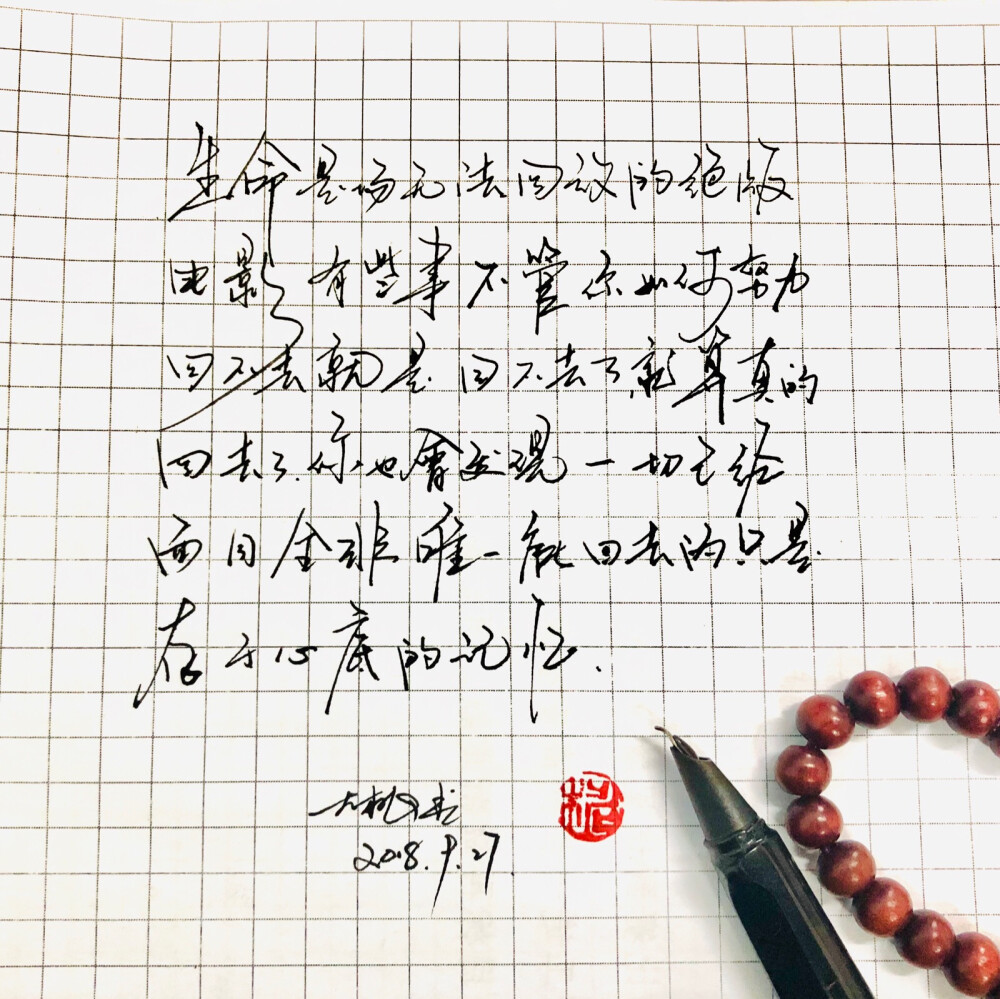 生命是场无法回放的绝版
电影有些事不管你如何努力
回不去就是回不去了就算真的
回去了你也會发现一切已给
面目全非唯一能回去的只是
存于心底的记忆.
2018.9.27.